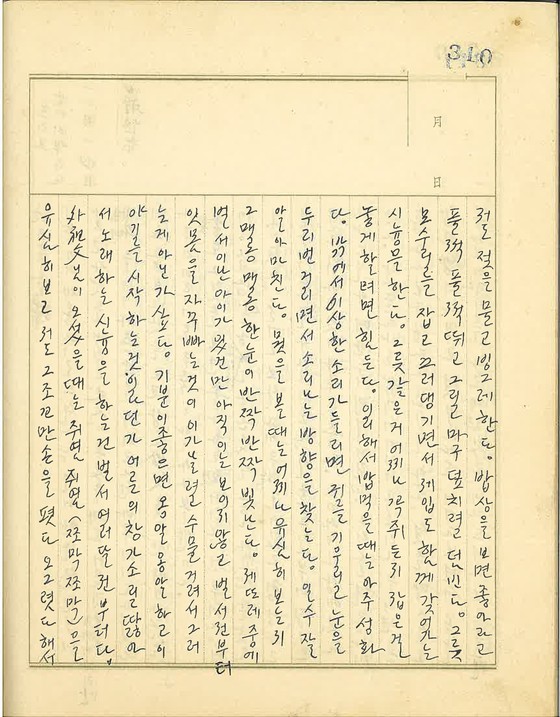 310
月
日
젖을 물고 빙그레 한다. 밥상을 보면 좋아라고
풀쩍 풀쩍 뛰고 그리고 마구 덮치려 덤빈다. 그릇
모수리를 잡고 끄러댕기면서 제입도 함께 갖어가는
시늉을 한다. 그릇 같은거 어찌나 꼭 쥐는지
놓게 할려면 힘든다. 이러해서 밥먹을 때는 아주 성화
다. 밖에서 이상한 소리가 들리면 귀를 기우리고 눈을
두리번 거리면서 소리나는 방향을 찾는다. 일수 잘
알아마친다. 무엇을 볼 때는 어찌나 유심히 보는지
그 매롱 매롱 한 눈이 반짝 반짝 빛난다. 제또레 중에
벌서 이난 아이가 있건만 아직 이는 보이지 않고 벌서 전부터
잇몸을 자꾸 빠는 것이 이가 날려고 수물 거려서 그러
는게 아닌가 싶으다. 기분이 좋으면 옹알 옹알 하고 이
야기를 시작 하는 것이라던가 어른의 창가소리를 딿아
서 노래하는 시늉을 하는건 벌서 여러달 전부터다.
外祖父님이 오셨을 때는 쥐엄 쥐엄 (쪼막 쪼막) 을
유심히 보고 저도 그 조고만 손을 폇다 오그렷다 해서